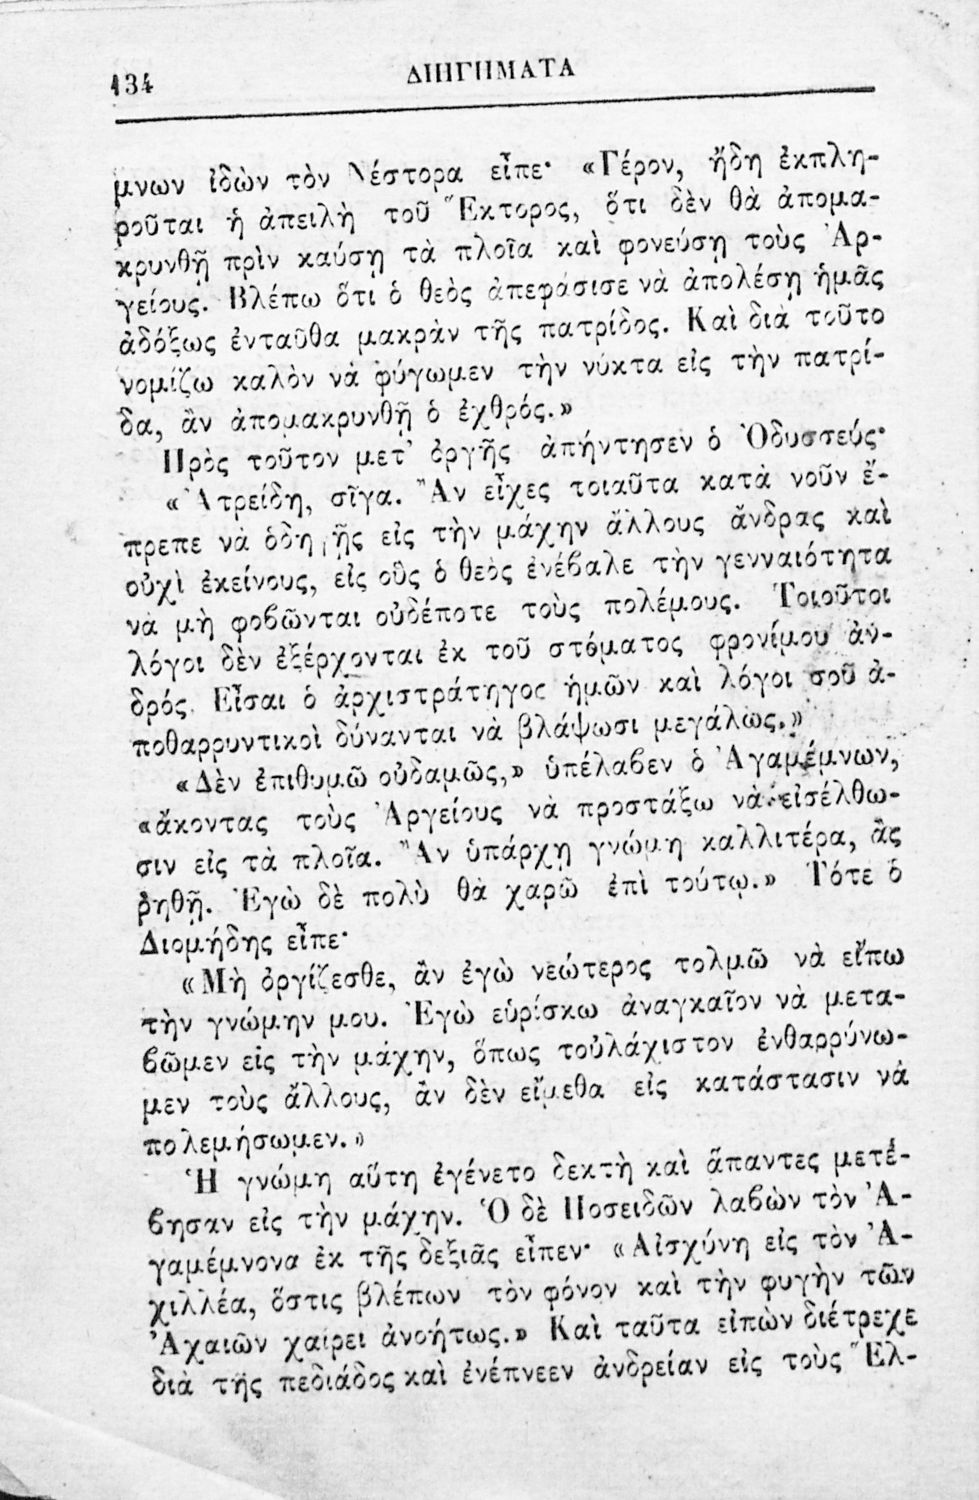 134
ΔΙΗΓΗΜΑΤΑ
μνων ἰδὼν τὸν Νέστορα εἶπε· «Γέρον, ἤδη ἐκπλη-
ροῦται ἡ ἀπειλὴ τοῦ Ἕκτορος, ὅτι δὲν θὰ ἀπομα-
κρυνθῇ πρὶν καύσῃ τὰ πλοῖα καὶ φονεύσῃ τοὺς Ἀρ-
γείους. Βλέπω ὅτι ὁ θεὸς ἀπεφάσισε νὰ ἀπολέσῃ ἡμᾶς
ἀδόξως ἐνταῦθα μακρὰν τῆς πατρίδος. Καὶ διὰ τοῦτο
νομίζω καλὸν νὰ φύγωμεν τὴν νύκτα εἰς τὴν πατρί-
δα, ἂν ἀπομακρυνθῇ ὁ ἐχθρός.»
Πρὸς τοῦτον μετ' ὀργῆς ἀπήντησεν ὁ Ὀδυσσεύς·
«Ἀτρείδη, σῖγα. Ἂν εἶχες τοιαῦτα κατὰ νοῦν ἔ-
πρεπε νὰ ὁδηγῇς εἰς τὴν μάχην ἄλλους ἄνδρας καὶ
οὐχὶ ἐκείνους, εἰς οὓς ὁ θεὸς ἐνέβαλε τὴν γενναιότητα
νὰ μὴ φοβῶνται οὐδέποτε τοὺς πολέμους. Τοιοῦτοι
λόγοι δὲν ἐξέρχονται ἐκ τοῦ στόματος φρονίμου ἀν-
δρός. Εἶσαι ὁ ἀρχιστράτηγος ἡμῶν καὶ λόγοι σοῦ ἀ-
ποθαρρυντικοὶ δύνανται νὰ βλάψωσι μεγάλως.»
«Δὲν ἐπιθυμῶ οὐδαμῶς,» ὑπέλαβεν ὁ Ἀγαμέμνων,
«ἄκοντας τοὺς Ἀργείους νὰ προστάξω νὰ εἰσέλθω-
σιν εἰς τὰ πλοῖα. Ἂν ὑπάρχῃ γνώμη καλλιτέρα, ἂς
ῥηθῇ. Ἐγὼ δὲ πολὺ θὰ χαρῶ ἐπὶ τούτῳ.» Τότε ὁ
Διομήδης εἶπε·
«Μὴ ὀργίζεσθε, ἂν ἐγὼ νεώτερος τολμῶ νὰ εἴπω
τὴν γνώμην μου. Ἐγὼ εὑρίσκω ἀναγκαῖον νὰ μετα-
βῶμεν εἰς τὴν μάχην, ὅπως τοὐλάχιστον ἐνθαρρύνω-
μεν τοὺς ἄλλους, ἂν δὲν εἴμεθα εἰς κατάστασιν νὰ
πολεμήσωμεν.»
Ἡ γνώμη αὕτη ἐγένετο δεκτὴ καὶ ἅπαντες μετέ-
βησαν εἰς τὴν μάχην. Ὁ δὲ Ποσειδῶν λαβὼν τὸν Ἀ-
γαμέμνονα ἐκ τῆς δεξιᾶς εἶπεν· «Αἰσχύνη εἰς τὸν Ἀ-
χιλλέα, ὅστις βλέπων τὸν φόνον καὶ τὴν φυγὴν τῶν
Ἀχαιῶν χαίρει ἀνοήτως.» Καὶ ταῦτα εἰπὼν διέτρεχε
διὰ τῆς πεδιάδος καὶ ἐνέπνεεν ἀνδρείαν εἰς τοὺς Ἕλ-